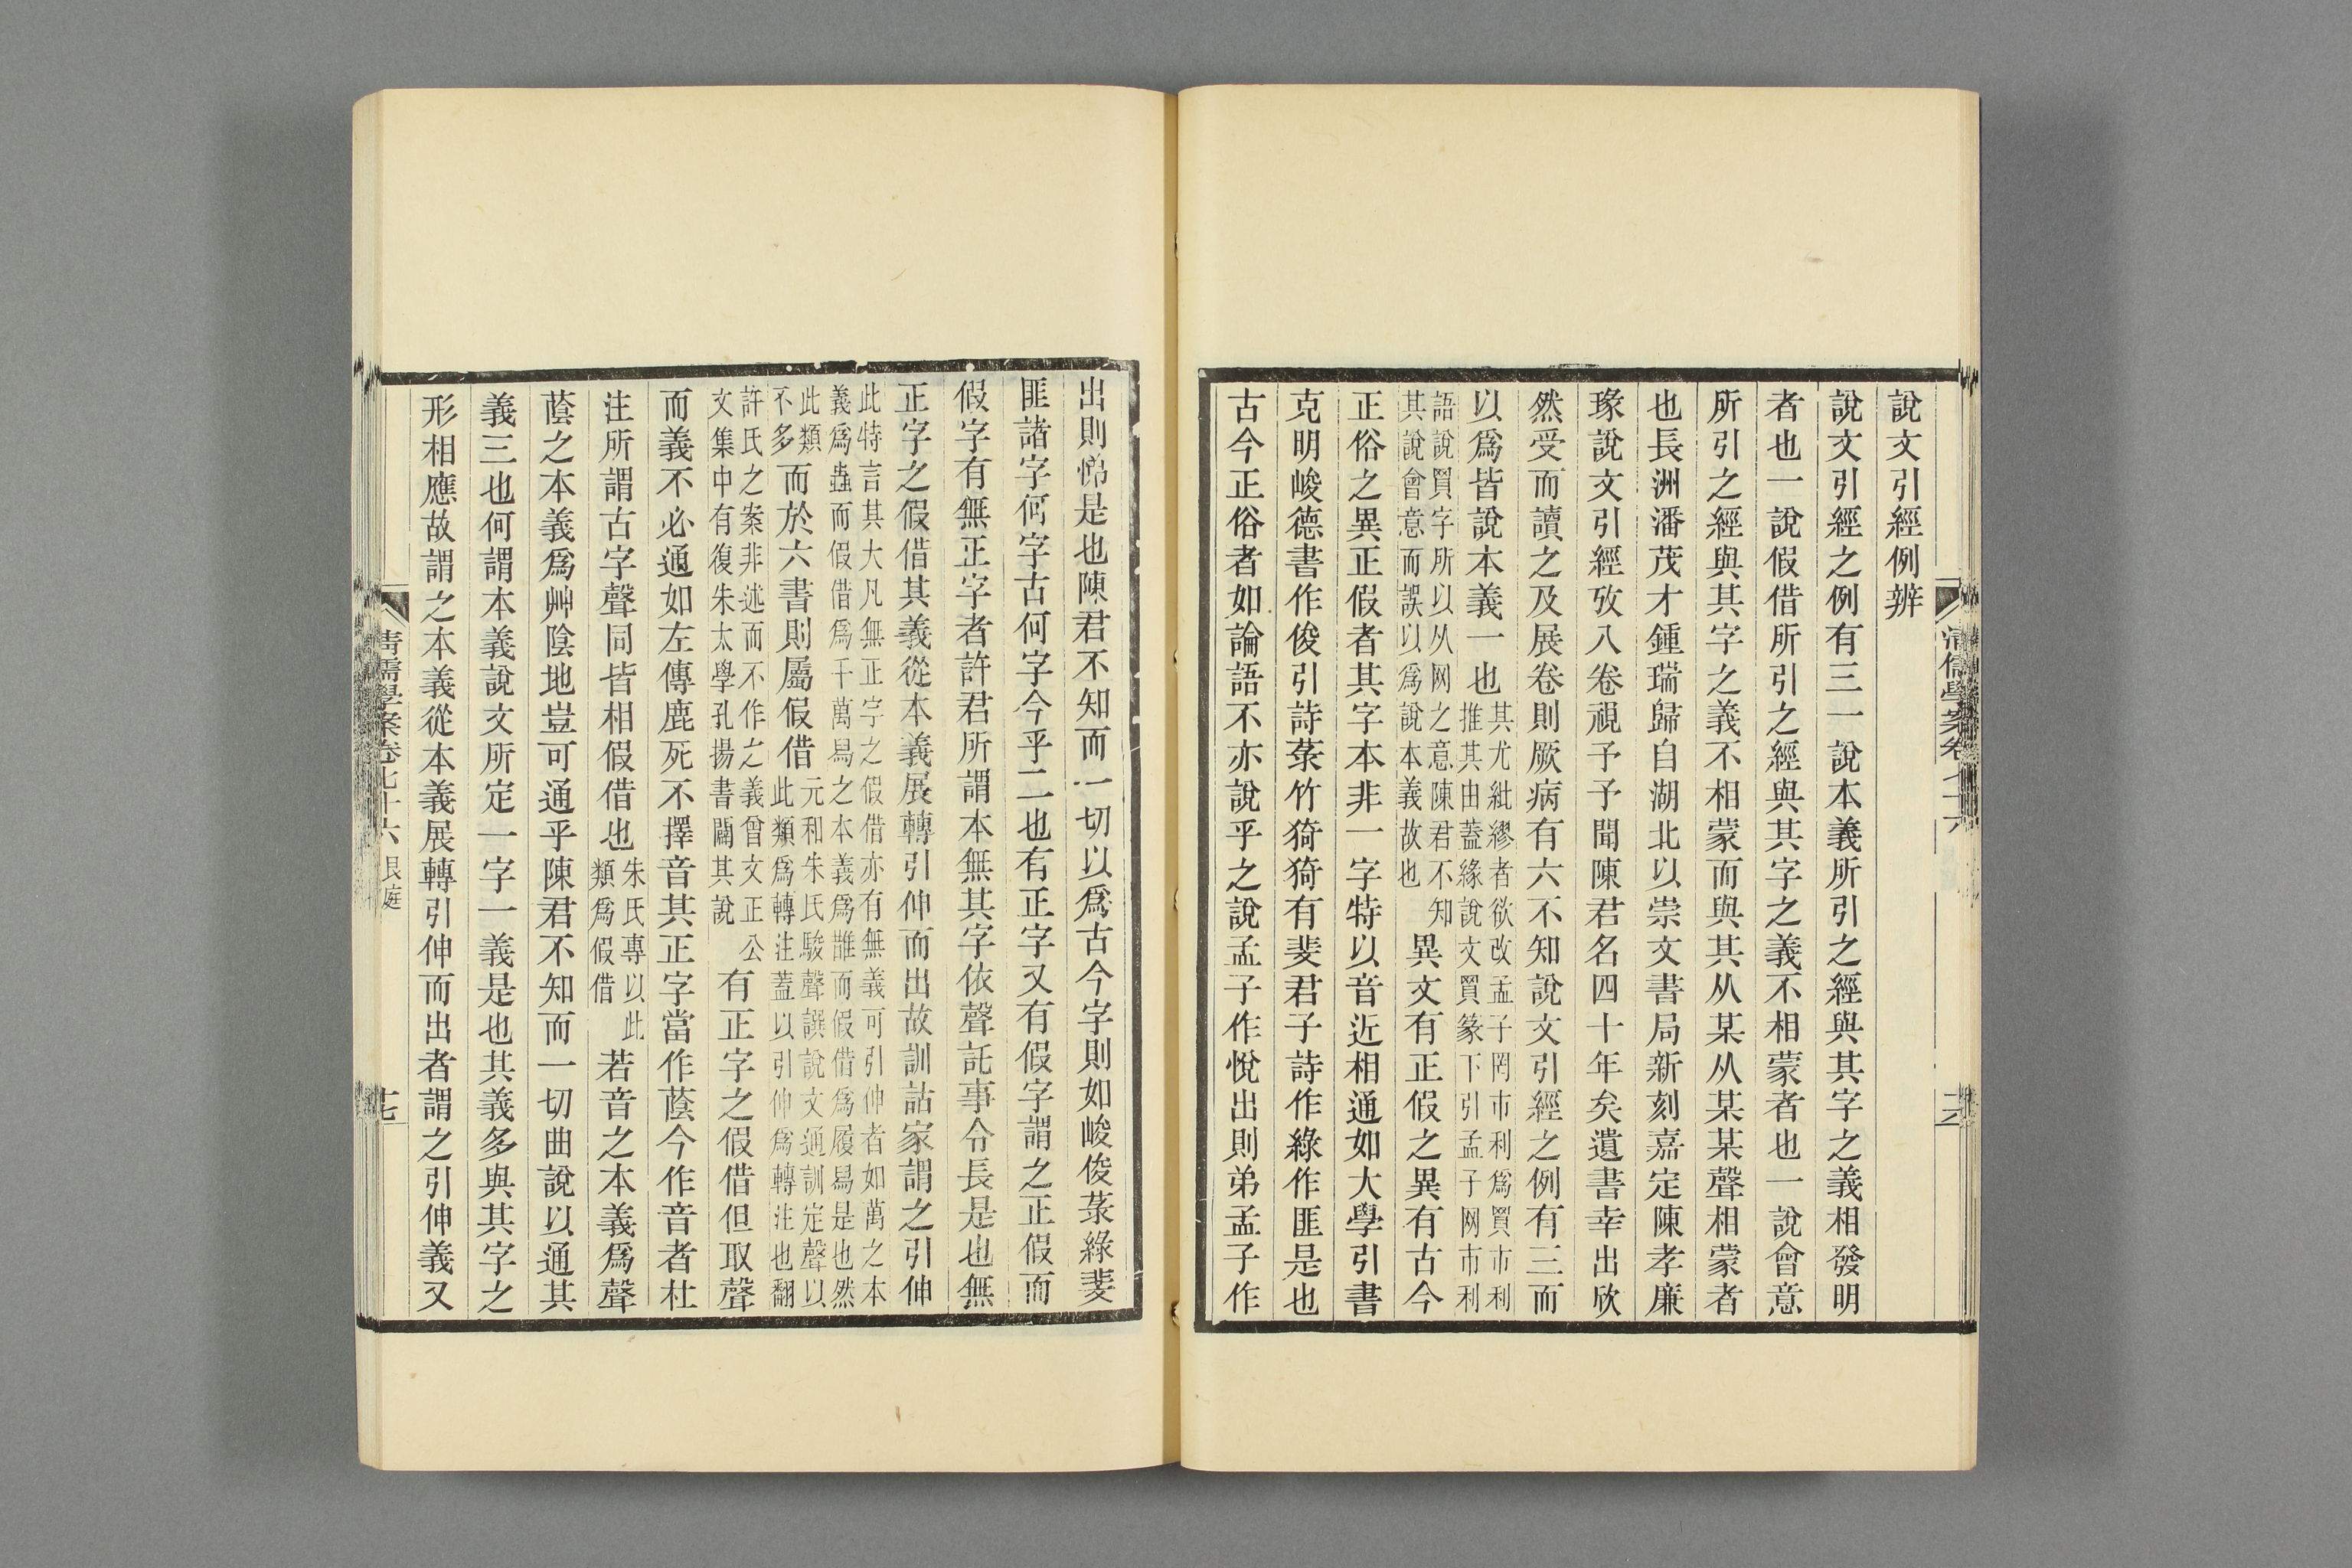 說文引經例辨
說文引經之例有三一說本義所引之經與其字之義相發明
者也一說假借所引之經與其字之義不相蒙者也一說會意
所引之經與其字之義不相蒙而與其从某从某某聲相蒙者
也長洲潘茂才鍾瑞歸自湖北以崇文書局新刻嘉定陳孝廉
瑑說文引經攷八卷視予予聞陳君名四十年矣遺書幸出欣
然受而讀之及展卷則厥病有六不知說文引經之例有三而
以爲皆說本義一也其尤紕繆者欲改孟子罔市利爲買市利
推其由蓋緣說文買篆下引孟子网市利
語說買字所以从网之意陳君不知
其說會意而誤以爲說本義故也
異文有正假之異有古今
正俗之異正假者其字本非一字特以音近相通如大學引書
克明峻德書作俊引詩菉竹猗猗有斐君子詩作綠作匪是也
古今正俗者如論語不亦說乎之說孟子作悅出則弟孟子作
出則悌是也陳君不知而一切以爲古今字則如峻俊菉綠斐
匪諸字何字古何字今乎二也有正字又有假字謂之正假而
假字有無正字者許君所謂本無其字依聲託事令長是也無
正字之假借其義從本義展轉引伸而出故訓詁家謂之引伸
此特言其大凡無正字之假借亦有無義可引伸者如萬之本
義爲蟲而假借爲千萬舄之本義爲䧿而假借爲履舄是也然
此類
不多
而於六書則屬假借元和朱氏駿聲譔說文通訓定聲以
此類爲轉注蓋以引伸爲轉注也翻
許氏之案非述而不作之義曾文正公
文集中有復朱太學孔揚書闢其說
有正字之假借但取聲
而義不必通如左傳鹿死不擇音其正字當作蔭今作音者杜
注所謂古字聲同皆相假借也朱氏專以此
類爲假借
若音之本義爲聲
蔭之本義爲艸陰地豈可通乎陳君不知而一切曲說以通其
義三也何謂本義說文所定一字一義是也其義多與其字之
形相應故謂之本義從本義展轉引伸而出者謂之引伸義又
清儒學案卷七十六 艮庭
十七